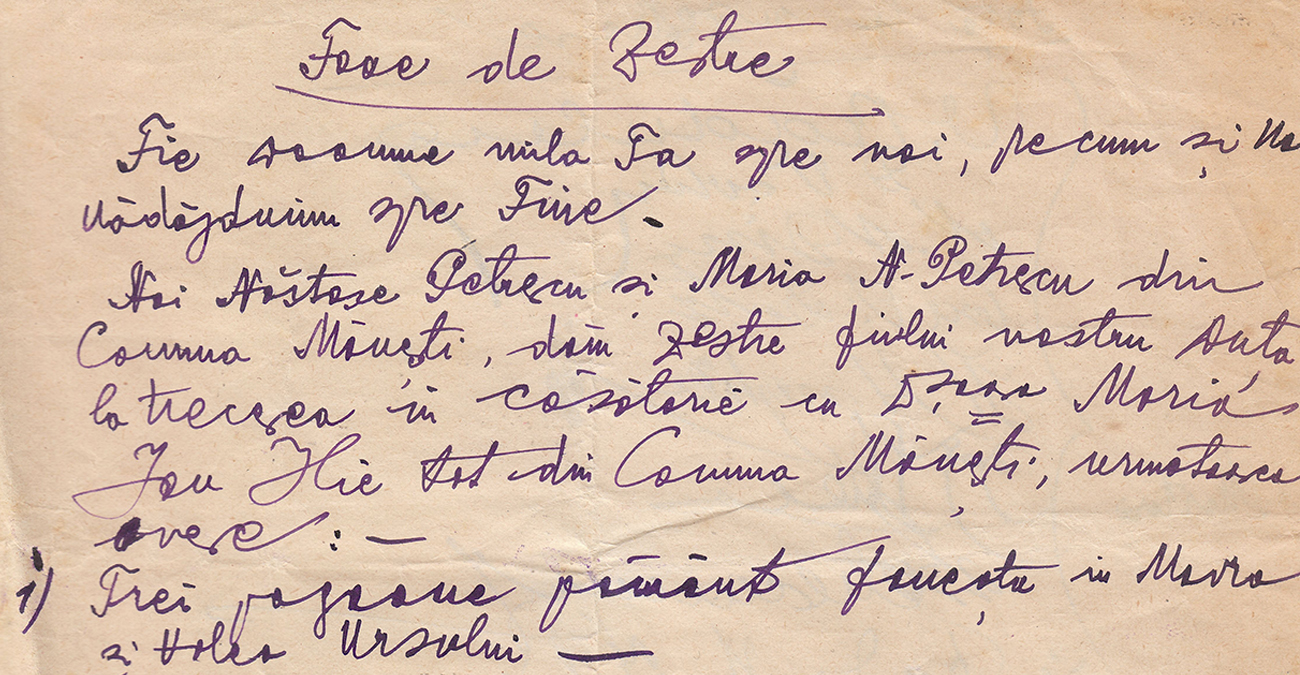 Foae de Zestre
Fie Doamne mila Ta spre noi, precum și
nădăjduim spre Tine.
Noi Năstase Petrescu și Maria N. Petrescu din
Comuna Mănești, dăm zestre fiului nostru Duță
la trecerea în căsătorie cu D-șoara Maria
Ion Ilie tot din Comuna Mănești, urmatoarea
avere : —
1) Trei pogoane pământ în
și Valea Ursului —